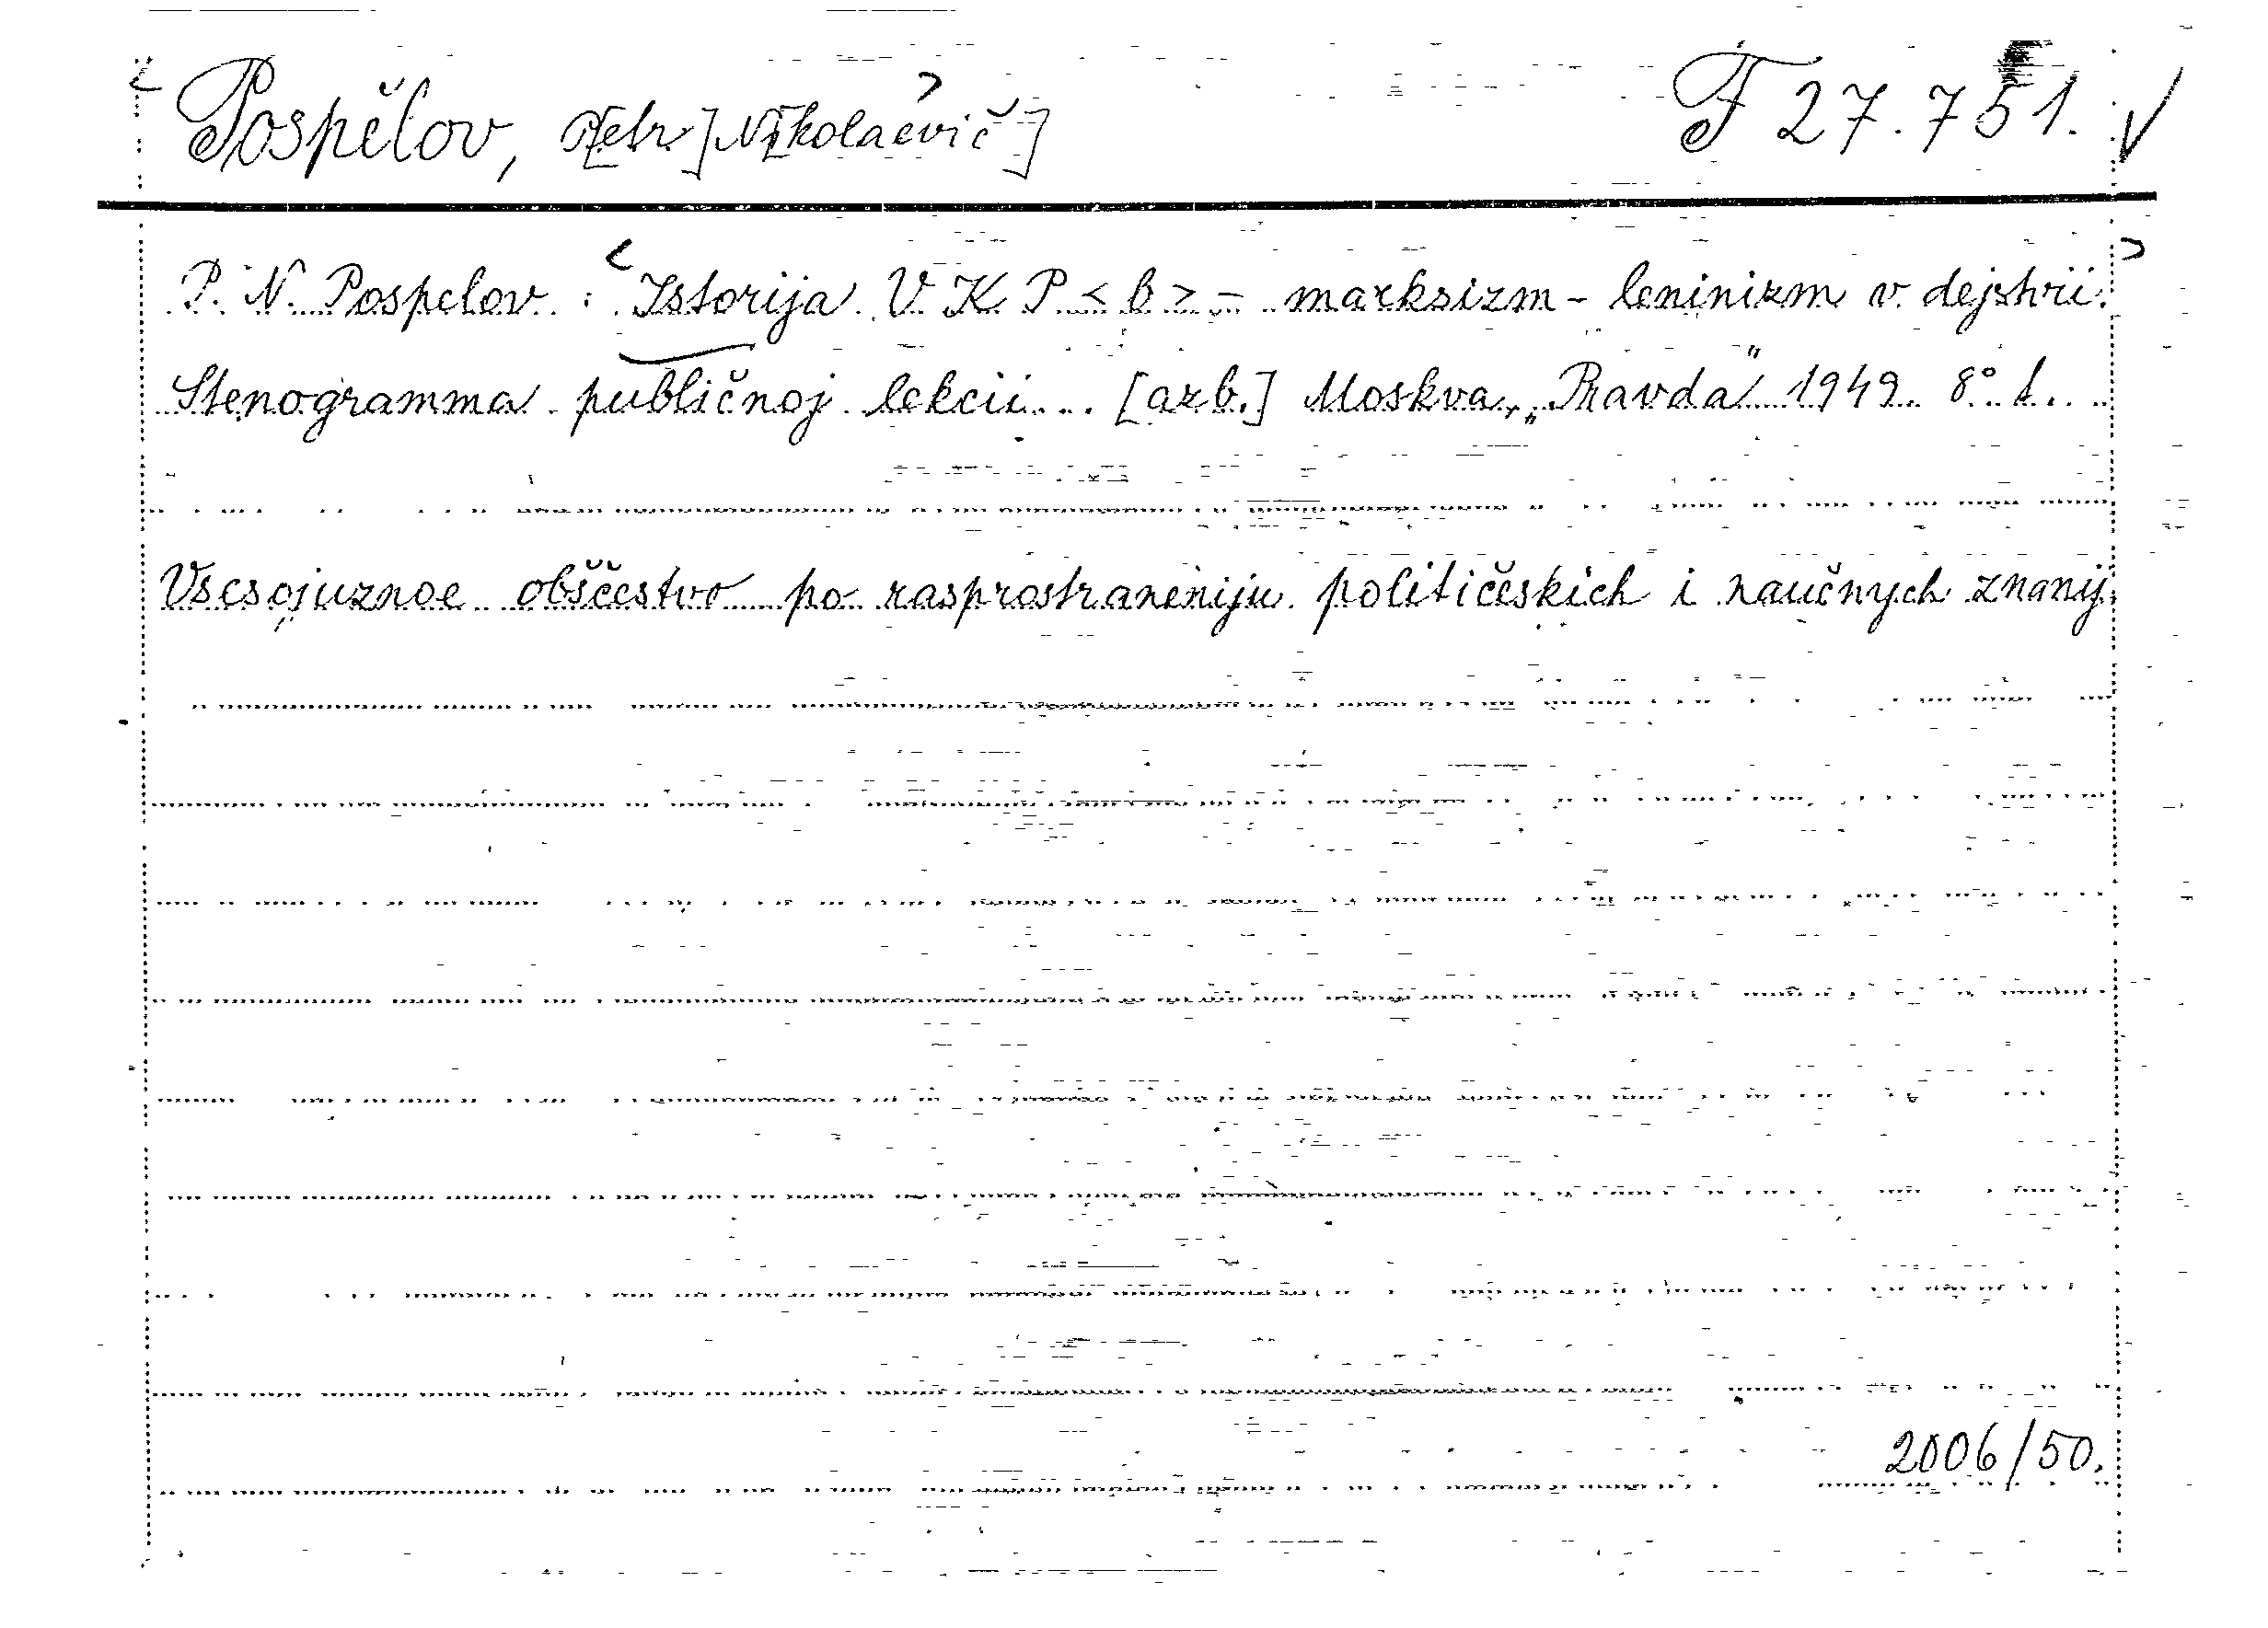 Pospělov, P[etr] N[ikolaevič] F 27.751.
P. N. Pospelov: Istorija V K P < b > - marksizm-leninizm v dejstvii.
Stenogramma publičnoj lekcii... [azb.] Moskva, „Pravda" 1949 8° 1..
Vsesojuznoe obščestvo po rasprostraneniju političeskich i naučnych znanij.
2006/50.